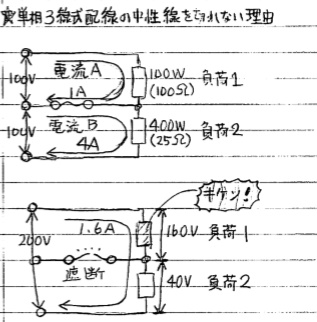 単相3線式配線の中性線を切れない理由
100V
電流A
1A
100W
(100Ω)
負荷1
100V
電流B
4A
400W
(25Ω)
負荷2
キケン!
200V
1.6A
遮断
160V
負荷1
40V
負荷2